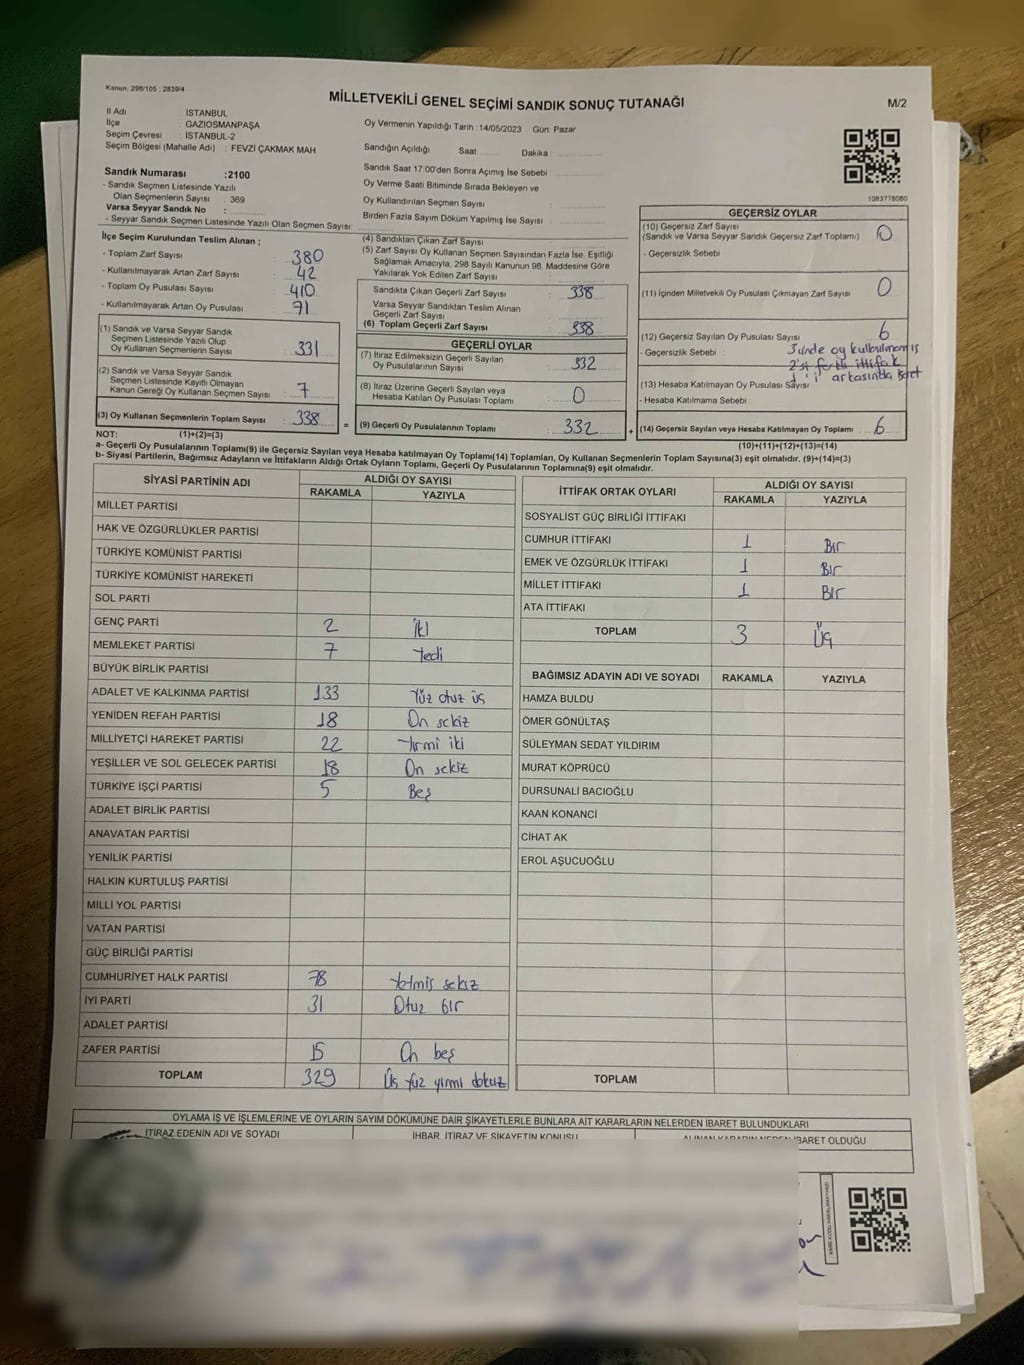 Kanun: 298/105 , 2839/4
MİLLETVEKİLİ GENEL SEÇİMİ SANDIK SONUÇ TUTANAĞI
M/2
İl Adı İSTANBUL
İlçe : GAZİOSMANPAŞA
Seçim Çevresi : İSTANBUL-2
Seçim Bölgesi (Mahalle Adı) : FEVZİ ÇAKMAK MAH.
Sandık Numarası :2100
- Sandık Seçmen Listesinde Yazılı
Olan Seçmenlerin Sayısı : 369
Varsa Seyyar Sandık No :
- Seyyar Sandık Seçmen Listesinde Yazılı Olan Seçmen Sayısı:
Oy Vermenin Yapıldığı Tarih :14/05/2023 Gün: Pazar
Sandığın Açıldığı Saat: Dakika :
Sandık Saat 17:00'den Sonra Açımış İse Sebebi :
Oy Verme Saati Bitiminde Sırada Bekleyen ve
Oy Kullandırılan Seçmen Sayısı :
Birden Fazla Sayım Döküm Yapılmış İse Sayısı :
1083778080
İlçe Seçim Kurulundan Teslim Alınan ;
- Toplam Zarf Sayısı : 380
- Kullanılmayarak Artan Zarf Sayısı : 42
- Toplam Oy Pusulası Sayısı : 410
- Kullanılmayarak Artan Oy Pusulası : 71
(1) Sandık ve Varsa Seyyar Sandık
Seçmen Listesinde Yazılı Olup
Oy Kullanan Seçmenlerin Sayısı : 331
(2) Sandık ve Varsa Seyyar Sandık
Seçmen Listesinde Kayıtlı Olmayan
Kanun Gereği Oy Kullanan Seçmen Sayısı : 7
(3) Oy Kullanan Seçmenlerin Toplam Sayısı : 338 =
(4) Sandıktan Çıkan Zarf Sayısı :
(5) Zarf Sayısı Oy Kullanan Seçmen Sayısından Fazla İse, Eşitliği
Sağlamak Amacıyla; 298 Sayılı Kanunun 98. Maddesine Göre
Yakılarak Yok Edilen Zarf Sayısı :
Sandıkta Çıkan Geçerli Zarf Sayısı : 338
Varsa Seyyar Sandıktan Teslim Alınan
Geçerli Zarf Sayısı :
(6) Toplam Geçerli Zarf Sayısı : 338
GEÇERLİ OYLAR
(7) İtiraz Edilmeksizin Geçerli Sayılan
Oy Pusulalarının Sayısı : 332
(8) İtiraz Üzerine Geçerli Sayılan veya
Hesaba Katılan Oy Pusulası Toplamı : 0
(9) Geçerli Oy Pusulalarının Toplamı : 332 +
GEÇERSİZ OYLAR
(10) Geçersiz Zarf Sayısı
(Sandık ve Varsa Seyyar Sandık Geçersiz Zarf Toplamı) : 0
- Geçersizlik Sebebi :
(11) İçinden Milletvekili Oy Pusulası Çıkmayan Zarf Sayısı : 0
(12) Geçersiz Sayılan Oy Pusulası Sayısı : 6
- Geçersizlik Sebebi : 3ünde oy kullanılmamış
2'si farklı ittifak
(13) Hesaba Katılmayan Oy Pusulası Sayısı : 1'i arkasında işaret
- Hesaba Katılmama Sebebi :
(14) Geçersiz Sayılan veya Hesaba Katılmayan Oy Toplamı : 6
NOT: (1)+(2)=(3) (10)+(11)+(12)+(13)=(14)
a- Geçerli Oy Pusulalarının Toplamı(9) ile Geçersiz Sayılan veya Hesaba katılmayan Oy Toplamı(14) Toplamları, Oy Kullanan Seçmenlerin Toplam Sayısına(3) eşit olmalıdır. (9)+(14)=(3)
b- Siyasi Partilerin, Bağımsız Adayların ve İttifakların Aldığı Ortak Oyların Toplamı, Geçerli Oy Pusulalarının Toplamına(9) eşit olmalıdır.
SİYASİ PARTİNİN ADI ALDIĞI OY SAYISI
RAKAMLA YAZIYLA
MİLLET PARTİSİ
HAK VE ÖZGÜRLÜKLER PARTİSİ
TÜRKİYE KOMÜNİST PARTİSİ
TÜRKİYE KOMÜNİST HAREKETİ
SOL PARTİ
GENÇ PARTİ 2 iki
MEMLEKET PARTİSİ 7 Yedi
BÜYÜK BİRLİK PARTİSİ
ADALET VE KALKINMA PARTİSİ 133 Yüz otuz üç
YENİDEN REFAH PARTİSİ 18 On sekiz
MİLLİYETÇİ HAREKET PARTİSİ 22 Yirmi iki
YEŞİLLER VE SOL GELECEK PARTİSİ 18 On sekiz
TÜRKİYE İŞÇİ PARTİSİ 5 Beş
ADALET BİRLİK PARTİSİ
ANAVATAN PARTİSİ
YENİLİK PARTİSİ
HALKIN KURTULUŞ PARTİSİ
MİLLİ YOL PARTİSİ
VATAN PARTİSİ
GÜÇ BİRLİĞİ PARTİSİ
CUMHURİYET HALK PARTİSİ 78 Yetmiş sekiz
İYİ PARTİ 31 Otuz bir
ADALET PARTİSİ
ZAFER PARTİSİ 15 On beş
TOPLAM 329 Üç yüz yirmi dokuz
İTTİFAK ORTAK OYLARI ALDIĞI OY SAYISI
RAKAMLA YAZIYLA
SOSYALİST GÜÇ BİRLİĞİ İTTİFAKI
CUMHUR İTTİFAKI 1 Bir
EMEK VE ÖZGÜRLÜK İTTİFAKI 1 Bir
MİLLET İTTİFAKI 1 Bir
ATA İTTİFAKI
TOPLAM 3 Üç
BAĞIMSIZ ADAYIN ADI VE SOYADI RAKAMLA YAZIYLA
HAMZA BULDU
ÖMER GÖNÜLTAŞ
SÜLEYMAN SEDAT YILDIRIM
MURAT KÖPRÜCÜ
DURSUNALİ BACIOĞLU
KAAN KONANCİ
CİHAT AK
EROL AŞUCUOĞLU
TOPLAM
OYLAMA İŞ VE İŞLEMLERİNE VE OYLARIN SAYIM DÖKÜMÜNE DAİR ŞİKAYETLERLE BUNLARA AİT KARARLARIN NELERDEN İBARET BULUNDUKLARI
İTİRAZ EDENİN ADI VE SOYADI İHBAR, İTİRAZ VE ŞİKAYETİN KONUSU ALINAN KARARIN NEDEN İBARET OLDUĞU